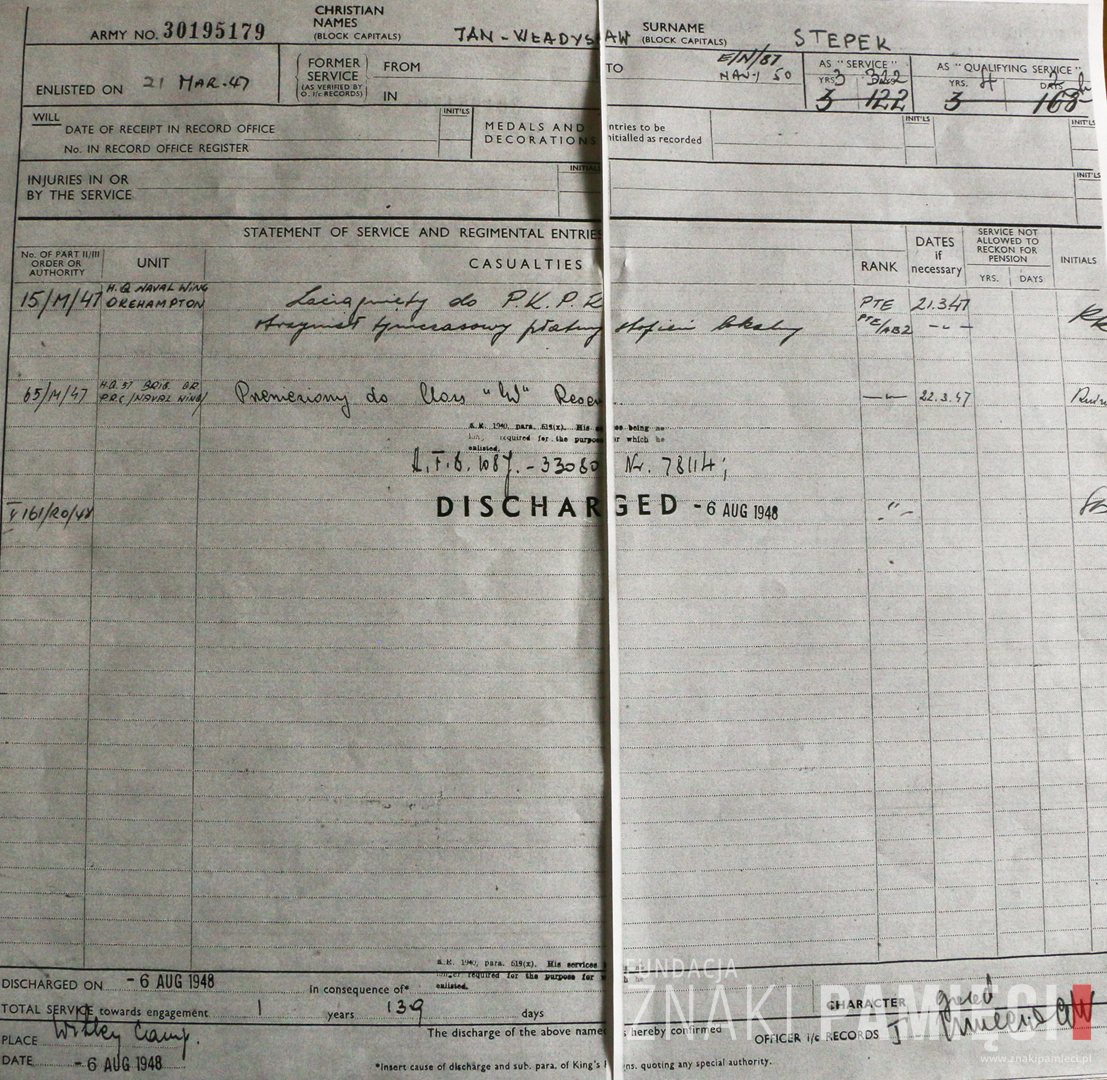 ARMY NO. 30195179 CHRISTIAN NAMES (BLOCK CAPITALS) JAN - WŁADYSŁAW SURNAME (BLOCK CAPITALS) STEPEK
ENLISTED ON 21 MAR. 47
FORMER SERVICE (AS VERIFIED BY O. i/c RECORDS) FROM TO
IN
AS "SERVICE" YRS. DAYS
3 322
3 122
AS "QUALIFYING SERVICE" YRS. DAYS
3 168
WILL
DATE OF RECEIPT IN RECORD OFFICE
No. IN RECORD OFFICE REGISTER
INIT'LS
MEDALS AND DECORATIONS
ntries to be
nitialled as recorded
INIT'LS
INIT'LS
INJURIES IN OR
BY THE SERVICE
INITIALS
INIT'LS
STATEMENT OF SERVICE AND REGIMENTAL ENTRIES
No. OF PART II/III ORDER OR AUTHORITY
UNIT
CASUALTIES
RANK
DATES if necessary
SERVICE NOT ALLOWED TO RECKON FOR PENSION
YRS. DAYS
INITIALS
15/M/47 H.Q NAVAL WING OKEHAMPTON Zaciągnięty do P.K.P.R PTE 21.3.47
otrzymał tymczasowy płatny stopień lokalny PTE/AB2 - - -
65/M/47 H.Q. 57 BRIG. GR. P.R.C/NAVAL WING/ Przeniesiony do Class "W" Reser 22.3.47
K.R. 1940, para. 519(x). His se being no
required for the purpose r which he
enlisted.
Nr. 78114;
161/RO/48 DISCHARGED - 6 AUG 1948
K.R. 1940, para. 519(x). His services
nger required for the purpose for w
enlisted.
DISCHARGED ON - 6 AUG 1948 In consequence of*
TOTAL SERVICE towards engagement 1 years 139 days
CHARACTER good
PLACE Witley Camp. The discharge of the above name s hereby confirmed
OFFICER i/c RECORDS
DATE - 6 AUG 1948
*Insert cause of discharge and sub. para. of King's ns. quoting any special authority.
FUNDACJA
ZNAKI PAMIĘCI
www.znakipamieci.pl